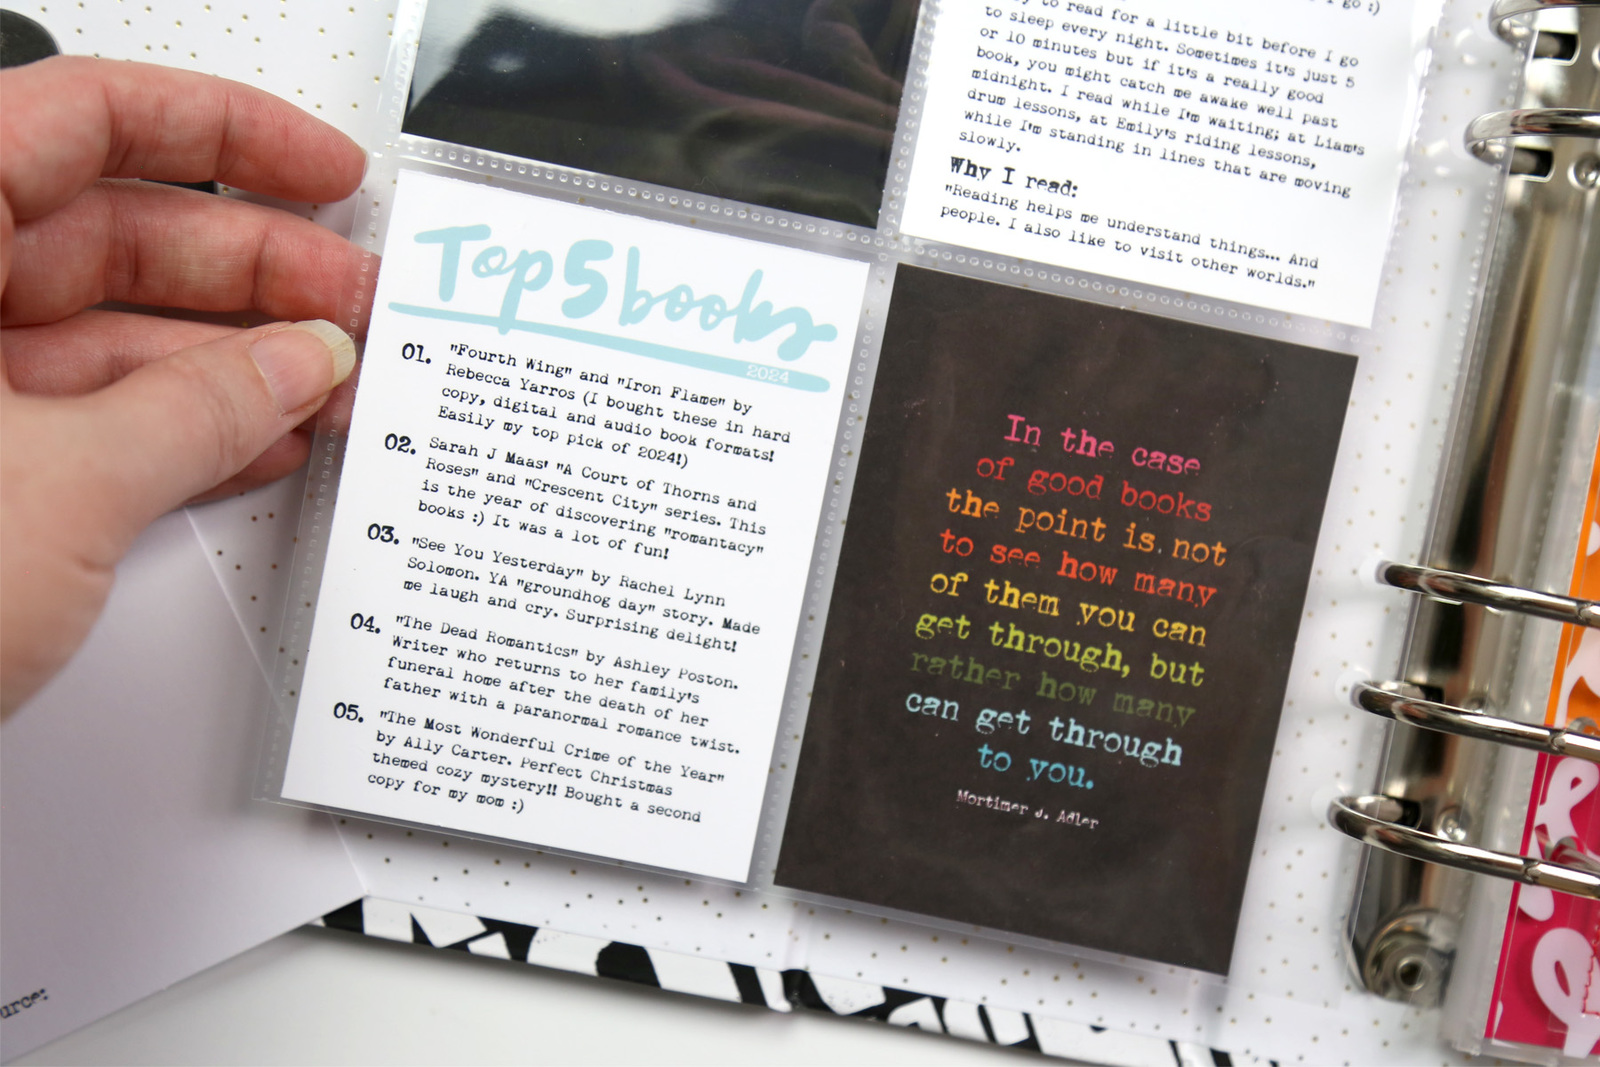 I go :)
to read for a little bit before I go
to sleep every night. Sometimes it's just 5
or 10 minutes but if it's a really good
book, you might catch me awake well past
midnight. I read while I'm waiting; at Liam's
drum lessons, at Emily's riding lessons,
while I'm standing in lines that are moving
slowly.
Why I read:
"Reading helps me understand things... And
people. I also like to visit other worlds."
Top 5 books
2024
01. "Fourth Wing" and "Iron Flame" by
Rebecca Yarros (I bought these in hard
copy, digital and audio book formats!
Easily my top pick of 2024!)
02. Sarah J Maas' "A Court of Thorns and
Roses" and "Crescent City" series. This
is the year of discovering "romantacy"
books :) It was a lot of fun!
03. "See You Yesterday" by Rachel Lynn
Solomon. YA "groundhog day" story. Made
me laugh and cry. Surprising delight!
04. "The Dead Romantics" by Ashley Poston.
Writer who returns to her family's
funeral home after the death of her
father with a paranormal romance twist.
05. "The Most Wonderful Crime of the Year"
by Ally Carter. Perfect Christmas
themed cozy mystery!! Bought a second
copy for my mom :)
In the case
of good books
the point is not
to see how many
of them you can
get through, but
rather how many
can get through
to you.
Mortimer J. Adler
urce: